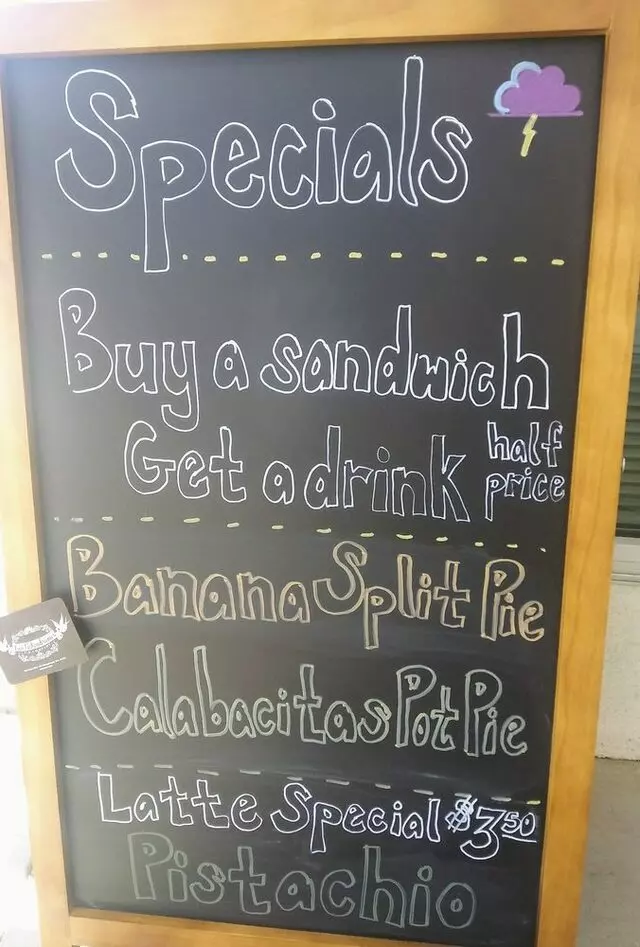 Specials
Buy a sandwich
Get a drink half price
Banana Split Pie
Calabacitas Pot Pie
Latte Special $3.50
Pistachio